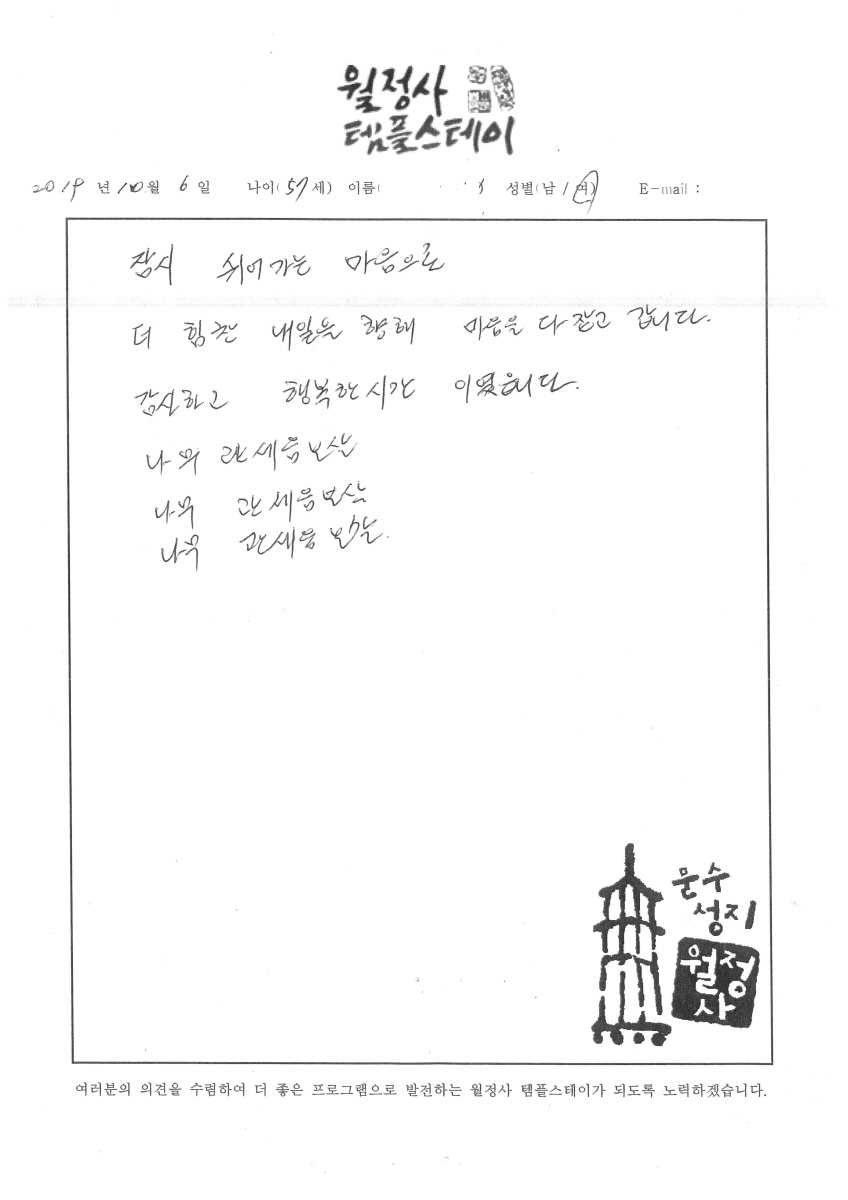 월정사
템플스테이
2019 년 10 월 6 일 나이( 57 세) 이름( ) 성별(남 / 여) E-mail :
잠시 쉬어가는 마음으로
더 힘찬 내일을 향해 마음을 다잡고 갑니다.
감사하고 행복한 시간 이였읍니다.
나무 관세음보살
나무 관세음보살
나무 관세음보살.
문수
성지
월정
사
여러분의 의견을 수렴하여 더 좋은 프로그램으로 발전하는 월정사 템플스테이가 되도록 노력하겠습니다.